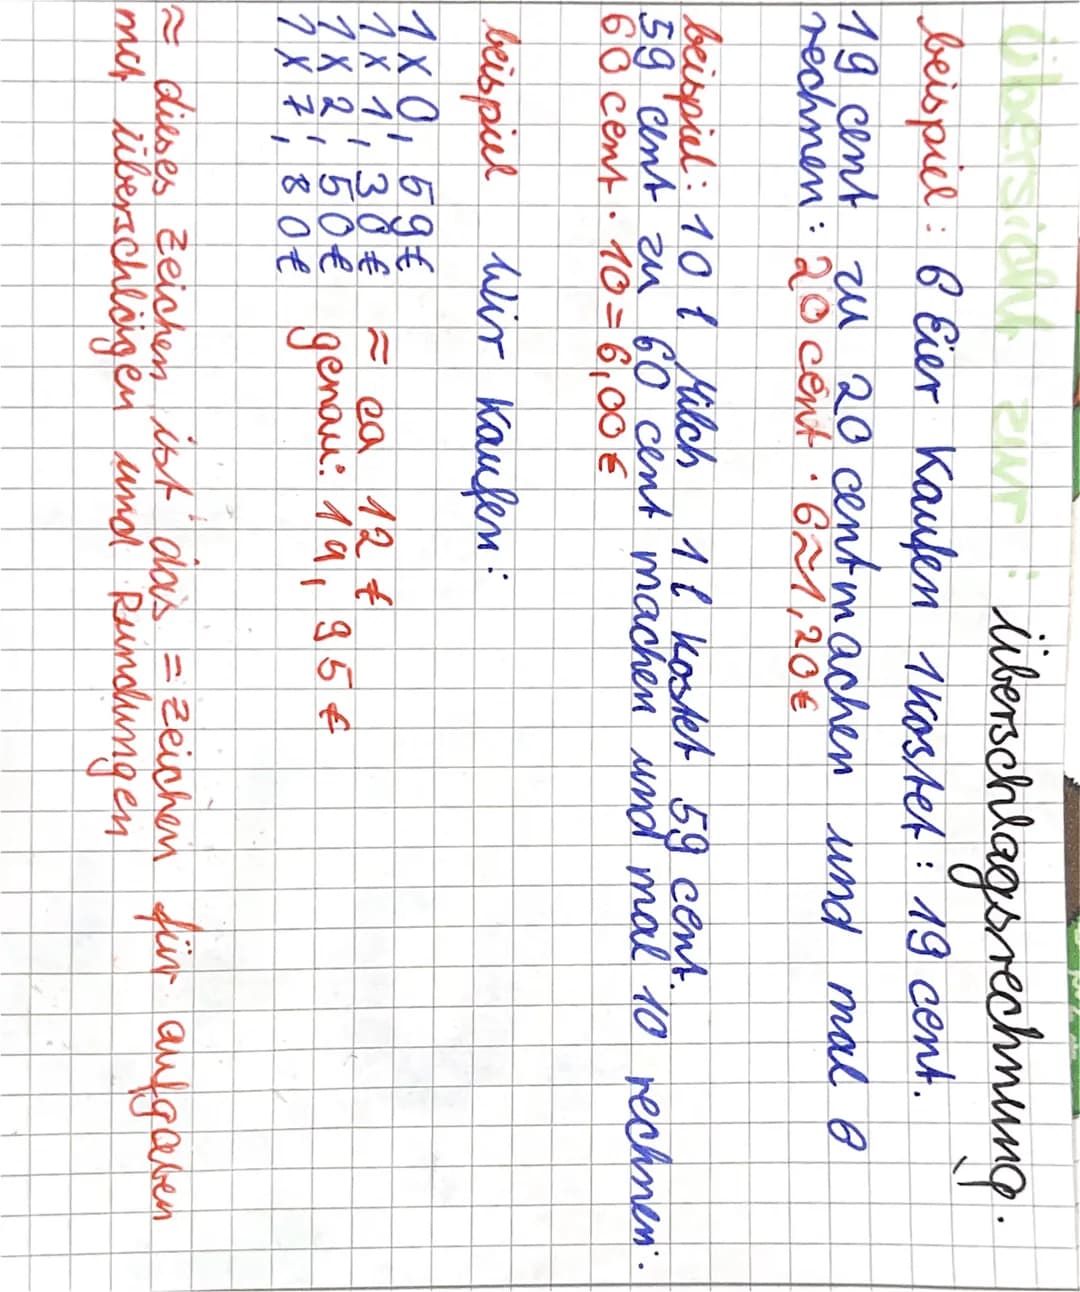 übersicht zur : Überschlagsrechnung.
beispiel: 6 Eier Kaufen 1 Kostet: 19 cent.
19 cent zu 20 cent machen und mal 6
rechnen: 20 cent · 6 ≈ 1,20 €
beispiel: 10 l Milch 1 l kostet 59 cent.
59 cent zu 60 cent machen und mal 10 rechnen.
60 cent · 10 = 6,00 €
beispiel Wir Kaufen:
1 x 0,59 €
1 x 1,30 € ≈ ca 12 €
1 x 2,50 € genau: 14,95 €
1 x 7,80 €
≈ dieses zeichen ist das = zeichen für aufgaben
mit überschlägen und Rundungen